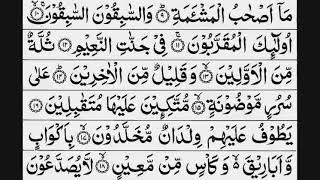 مَاۤ اَصْحٰبُ الْمَشْـَٔمَةِ ۹ وَالسّٰبِقُوْنَ السّٰبِقُوْنَ ۱۰
اُولٰٓئِكَ الْمُقَرَّبُوْنَ ۱۱ فِيْ جَنّٰتِ النَّعِيْمِ ۱۲ ثُلَّةٌ
مِّنَ الْاَوَّلِيْنَ ۱۳ وَقَلِيْلٌ مِّنَ الْاٰخِرِيْنَ ۱۴ عَلٰى
سُرُرٍ مَّوْضُوْنَةٍ ۱۵ مُّتَّكِـِٕيْنَ عَلَيْهَا مُتَقٰبِلِيْنَ ۱۶
يَطُوْفُ عَلَيْهِمْ وِلْدَانٌ مُّخَلَّدُوْنَ ۱۷ بِاَكْوَابٍ
وَّاَبَارِيْقَ وَكَاْسٍ مِّنْ مَّعِيْنٍ ۱۸ لَّا يُصَدَّعُوْنَ